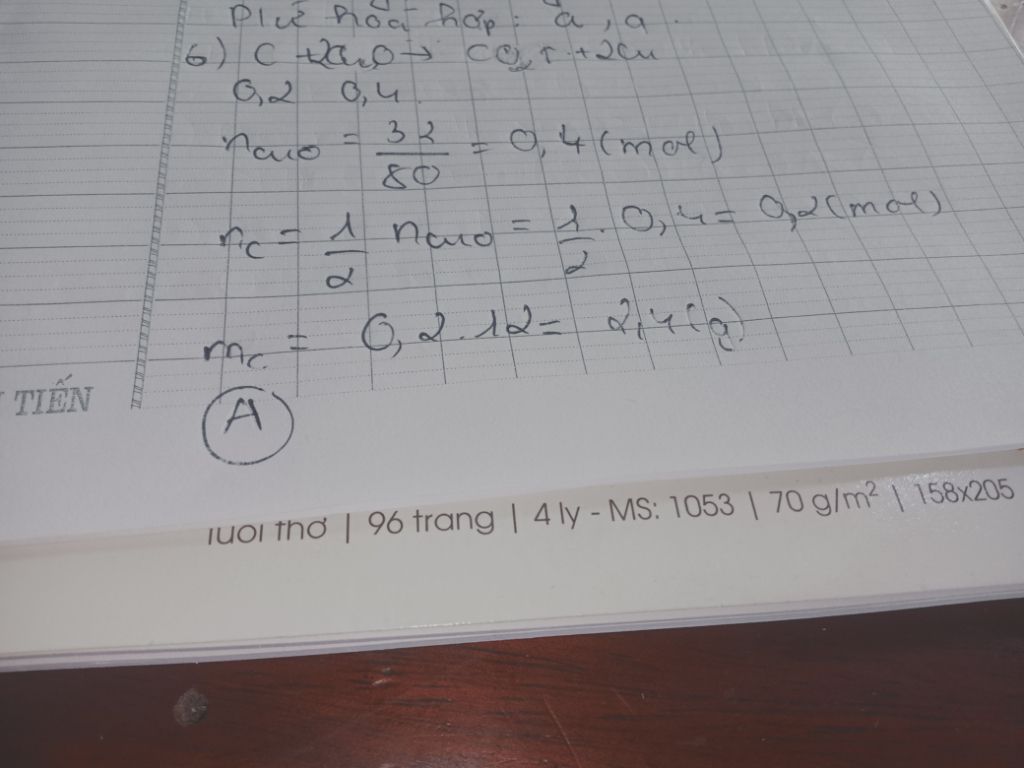 hoá hợp: a, a.
6) C + 2CuO → CO₂↑ + 2Cu
0,2 0,4
nCuO = 32/80 = 0,4 (mol)
nC = 1/2 nCuO = 1/2 . 0,4 = 0,2 (mol)
mC = 0,2 . 12 = 2,4 (g)
TIẾN
A
Tuổi thơ | 96 trang | 4 ly - MS: 1053 | 70 g/m² | 158x205